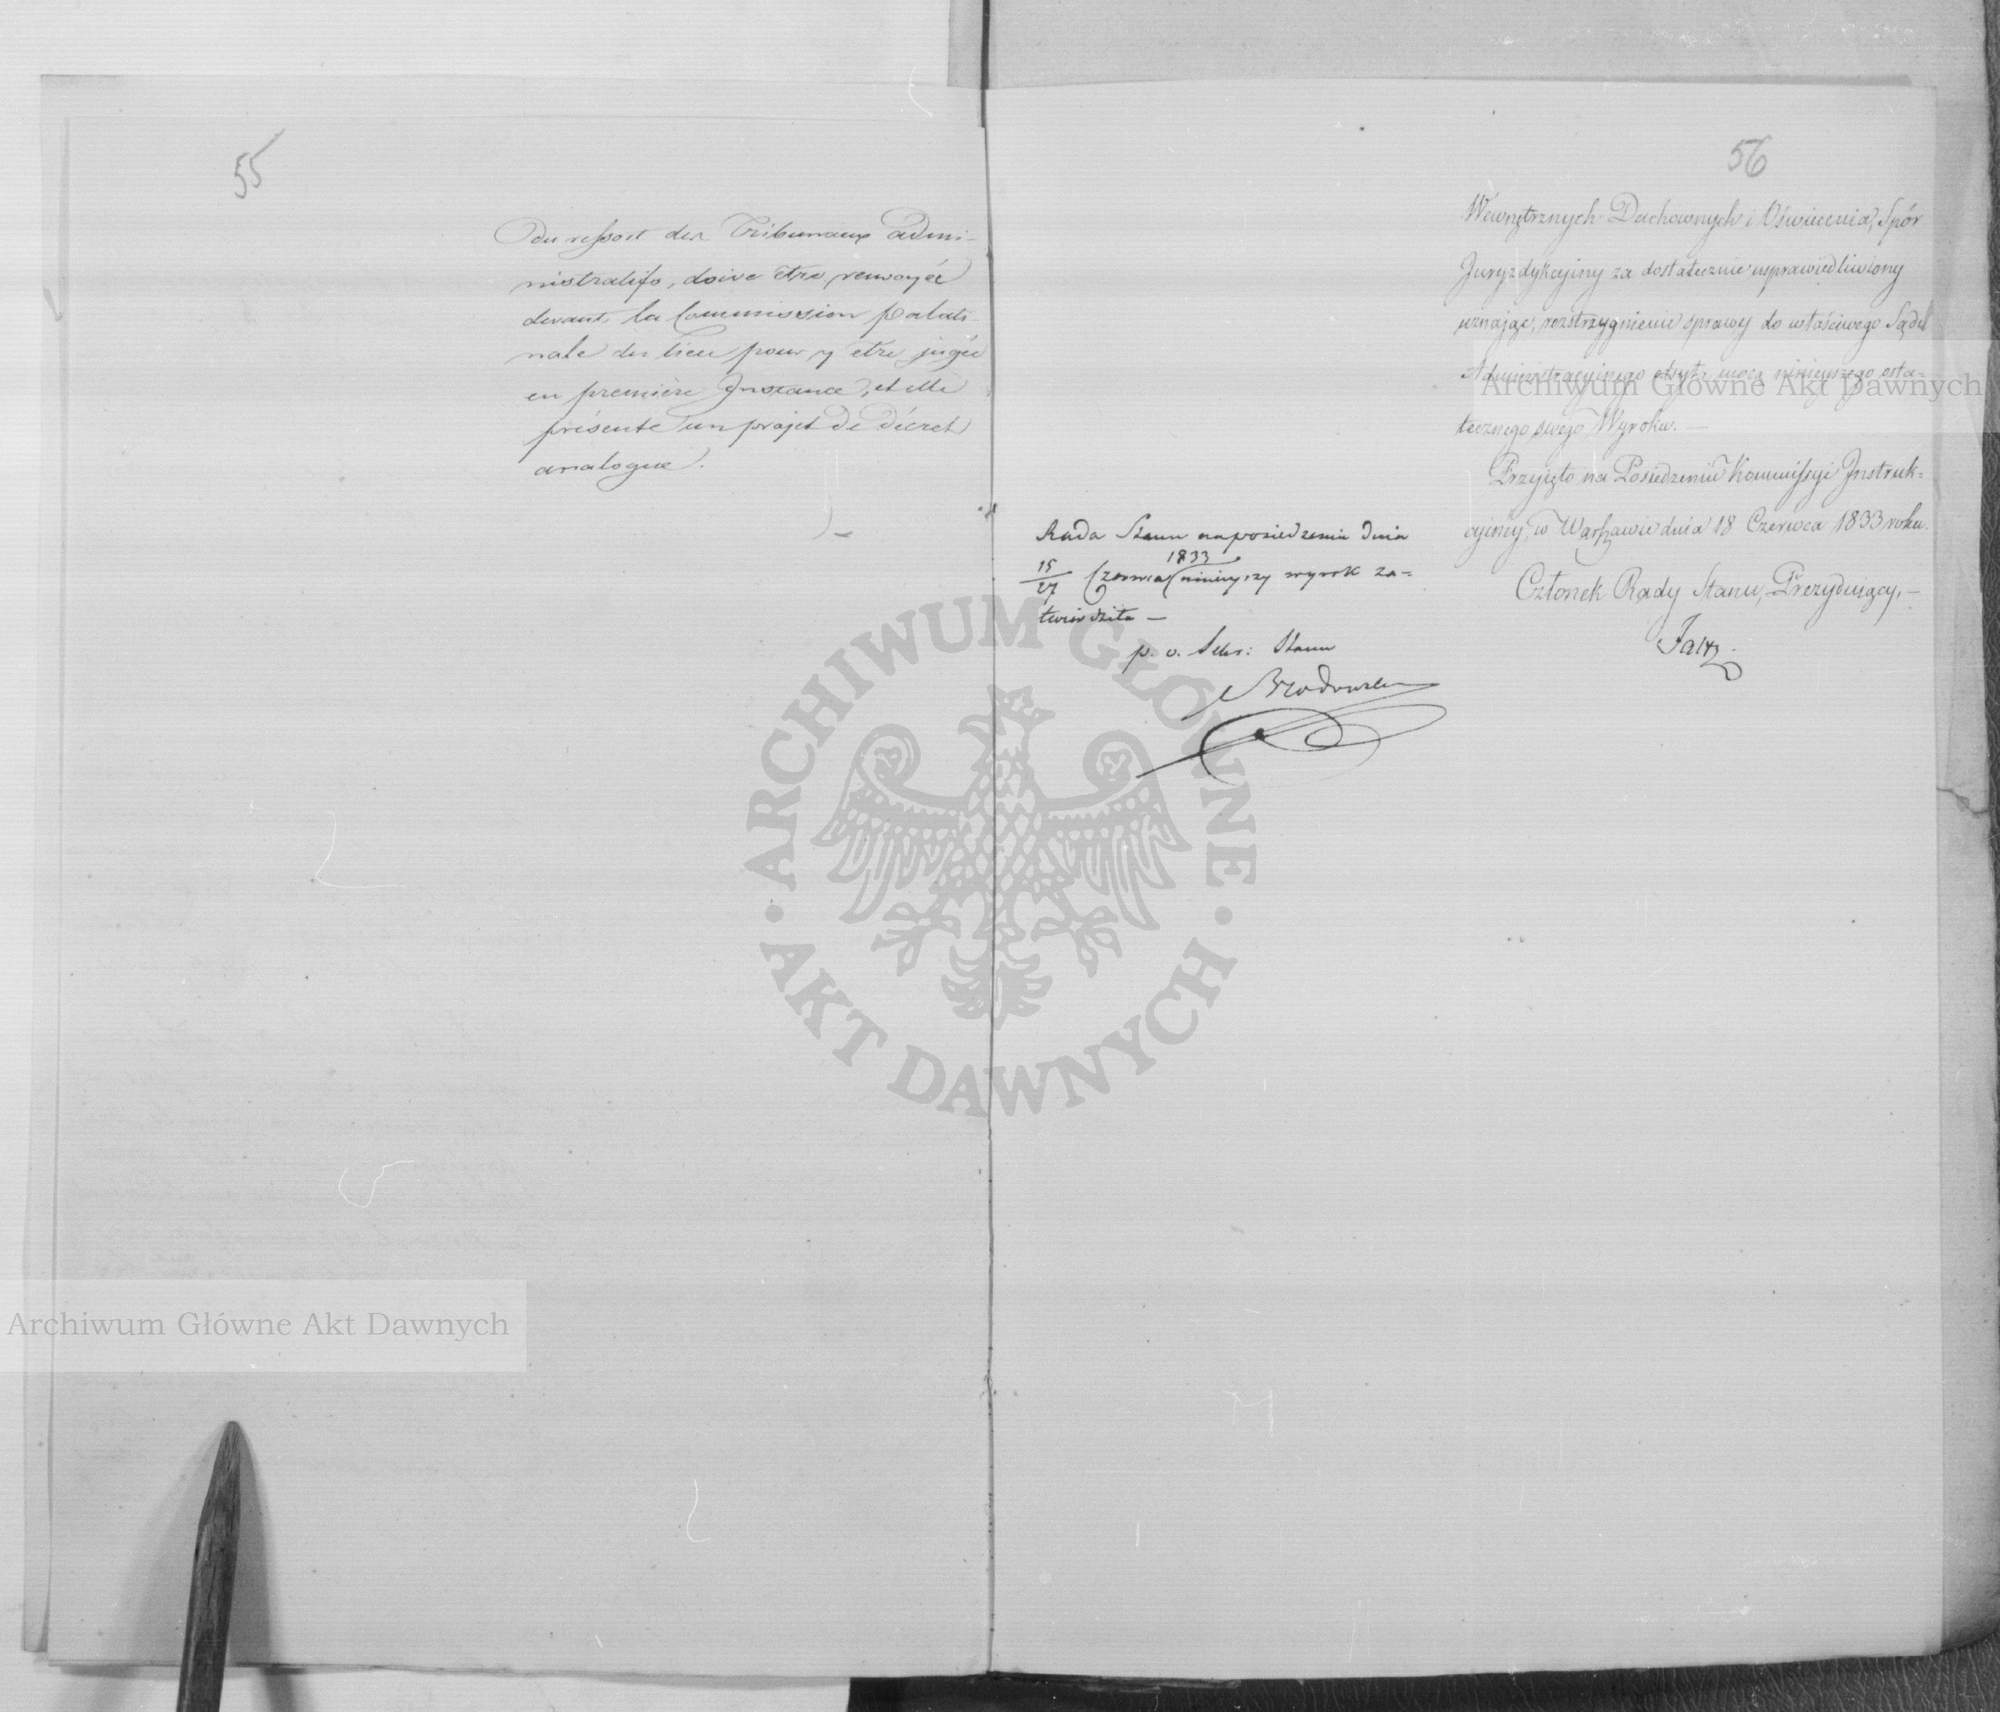 55
du ressort des Tribunaux admi-
nistratifs, doive être renvoyée
devant la Commission palati-
nale du lieu pour y être jugée
en première Instance, et elle
présente un projet de décret
analogue.
56
Wewnętrznych Duchownych i Oświecenia, Spór
Juryzdykcyiny za dostatecznie usprawiedliwiony
uznając, rozstrzygnienie sprawy do właściwego Sądu
Administracyinego mocą ninieyszego osta-
tecznego swego Wyroku. —
Przyięto na Posiedzeniu Kommissyi Instruk-
cyiney, w Warszawie dnia 18 Czerwca 1833 roku.
Członek Rady Stanu, Prezyduiący, —
Faltz
Rada Stanu na posiedzeniu dnia
15/27 Czerwca 1833 ninieyszy wyrok za-
twierdziła —
p. o. Sekr: Stanu
Brodowski
ARCHIWUM GŁÓWNE AKT DAWNYCH
Archiwum Główne Akt Dawnych
Archiwum Główne Akt Dawnych